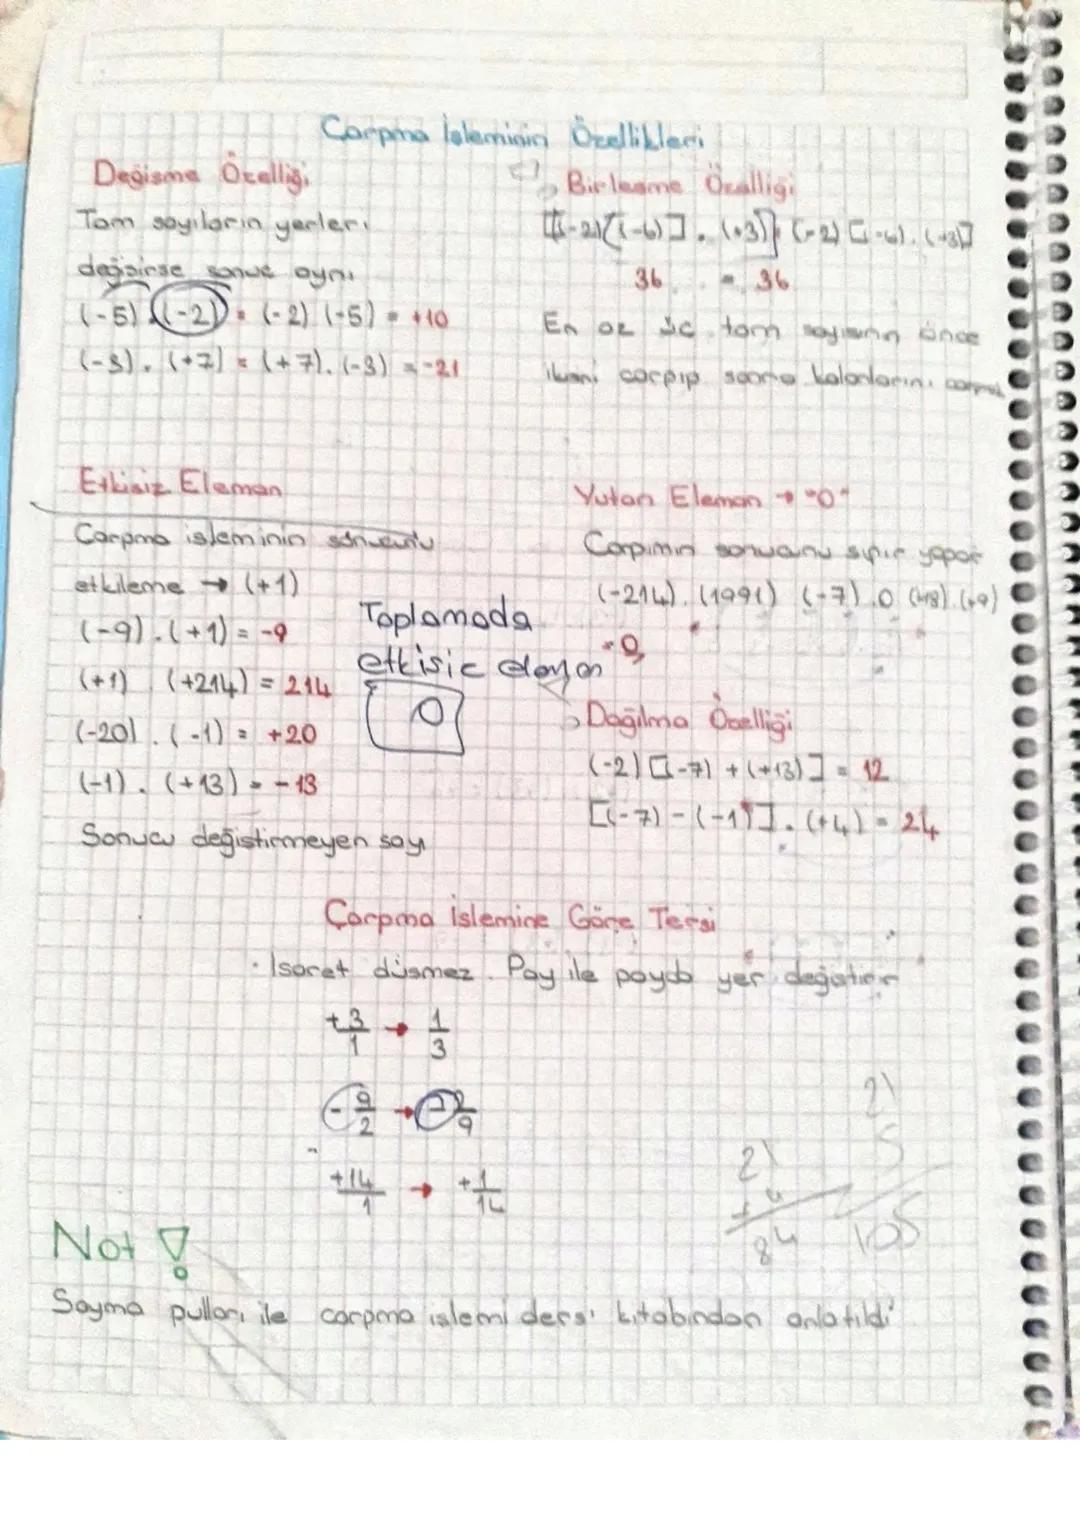 Çarpma İşleminin Özellikleri
Değişme Özelliği
Tam sayıların yerleri
değişirse sonuç aynı
(-5).(-2) = (-2) (-5) = +10
(-3). (+7) = (+7). (-3) = -21
Birleşme Özelliği
[(-2)(-6)]. (+3)} (-2) [(-6). (+3)]
36 = 36
En az üç tam sayının önce
ikisini çarpıp sonra kalanlarını çarpmak
Etkisiz Eleman
Çarpma işleminin sonucunu
etkileme → (+1)
(-9).(+1) = -9
(+1) (+214) = 214
(-20). (-1) = +20
(-1). (+13) = -13
Sonucu değiştirmeyen sayı
Toplamada
etkisiz eleman
0
Yutan Eleman → "0"
Çarpımın sonucunu sıfır yapar
(-214). (1991) (-7).0 (+18).(+9)
= 0
Dağılma Özelliği
(-2) [(-7) + (+13)] = 12
[(-7) - (-1)]. (+4) = 24
Çarpma İşlemine Göre Tersi
· İşaret düşmez. Pay ile payda yer değiştirir
+3/1 → 1/3
-9/2 → -2/9
+14/1 → +1/14
21
5
105
21
4
84
Not !
Sayma pulları ile çarpma işlemi ders kitabından anlatıldı